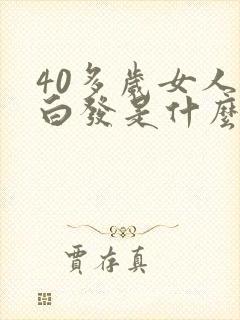 40多歲女人
白發是什麼
賈存真